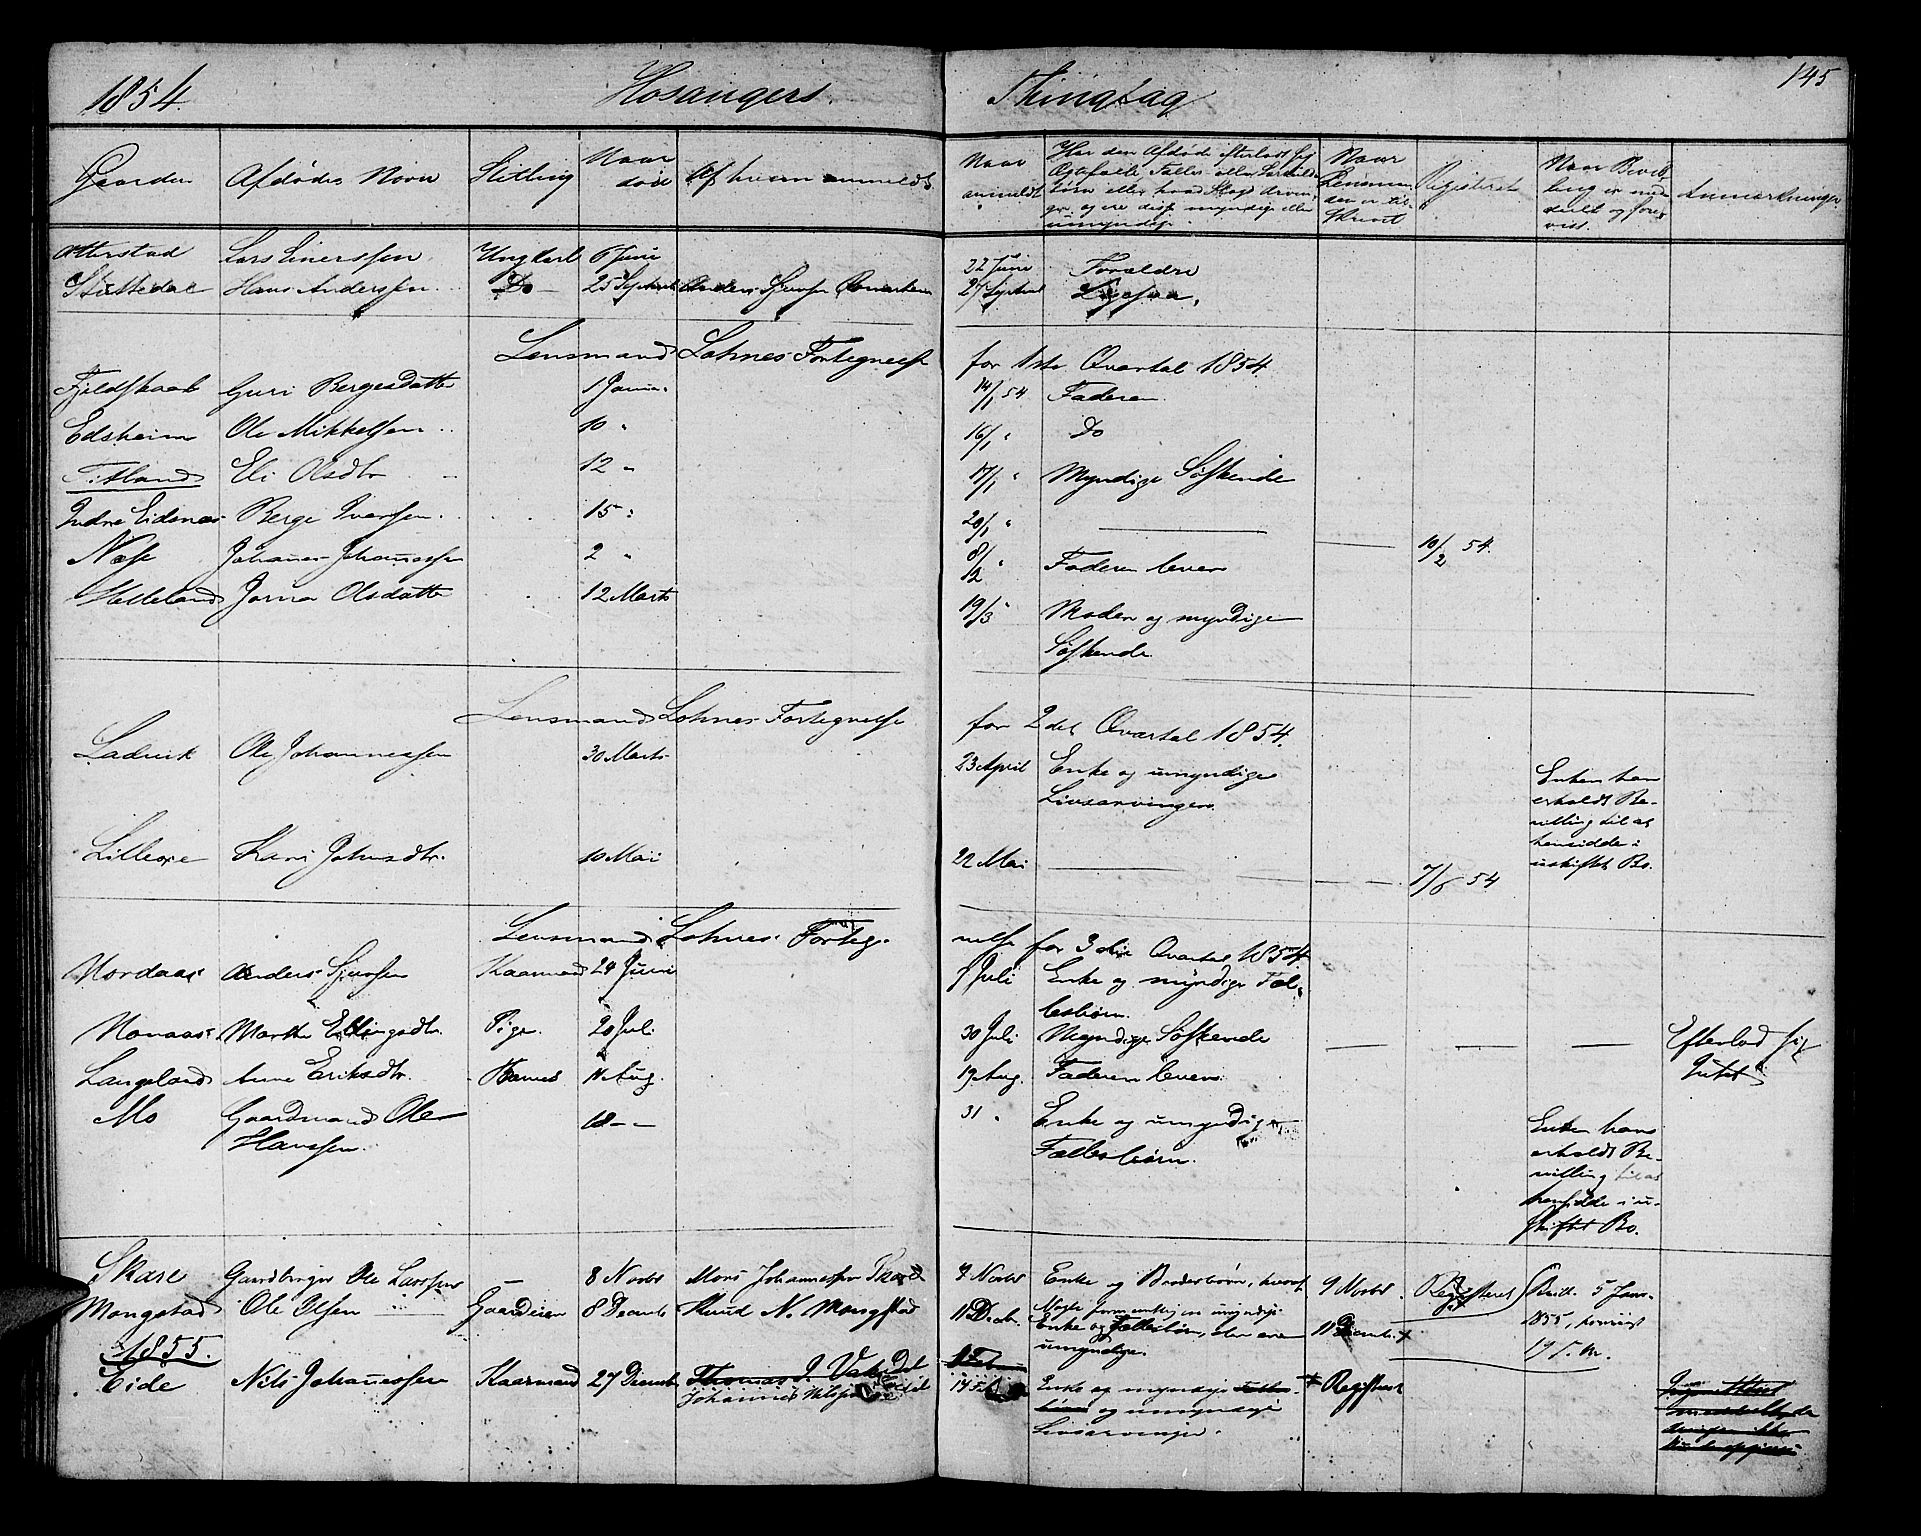 1854. Hosangers Thinglag 145
Gaarden Afdødes Navn Stilling Naar død Af hvem anmeldt Naar anmeldt Har den Afdøde efterladt sig Ægtefælle, Fælles eller Særkilds børn eller hvad Slags Arvinger og ere disse myndige eller umyndige Naar Lensmanden er tilskrevet Registeret Naar Bevilling er meddelt og forevist Anmærkninger
Otterstad Lars Einerssen Ungkarl 6 Juni 22 Juni Forældre
Støttedal Hans Anderssen Do 25 Septemb Anders Sjursen 27 Septemb Ligesaa.
Lensmand Lohnes Fortegnelse for 1ste Qvartal 1854.
Fjeldskaal Guri Bergesdatte 1 Januar 14/1 54 Faderen
Edsheim Ole Mikkelsen 10 " 16/1 " Do
Titland Eli Olsdtr 12 " 17/1 " Myndige Søskende
Indre Eidsnæs Berge Iversen 15 " 20/1 " 10/2 54.
Næse Johannes Johannessen 2 " 8/12 " Faderen lever
Helleland Jorna Olsdatte 12 Marts 19/3 " Moder og myndige
Søskende
Lensmand Lohnes Fortegnelse for 2det Qvartal 1854.
Ladvik Ole Johannessen 30 Marts 23 April Enke og umyndige
Livsarvinger.
Enken har
erholdt Be-
villing til at
hensidde i
uskiftet Bo.
Lilleøe Kari Johnsdtr. 10 Mai 22 Mai 7/6 54
Lensmand Lohnes Forteg-
nelse for 3die Qvartal 1854.
Nordaas Anders Sjursen Kaarmand 24 Juni Juli Enke og myndige Fæl-
lesbørn.
Nonaas Marthe Ellingsdtr. Pige. 20 Juli 30 Juli Myndige Søskende Efterlod sig
Intet
Langeland Anne Eriksdtr. Barnet 11 Aug. 19 Aug. Faderen lever.
Mo Gaardmand Ole
Hanssen. 18 - - 31 " Enke og umyndige
Fællesbørn.
Enken have
erholdt Be-
villing til at
hensidde i u-
skiftet Bo.
Skare Gaardbruger Ole Larssen 8 Novbr Mons Johannessen Skare 9 Novbr Enke og Broderbørn, hvoraf
Nogle formentlig ere umyndige 9 Novbr. Registeret Bevill. 5 Jan.
1855,
Mongstad Ole Olsen Gaardeier 8 Decemb Knud N. Mongstad 11 Decbr. Enke og Fællesbørn, der ere
umyndige. 11 Decemb.
1855.
Eide Nils Johannessen Kaarmand 27 Decemb Thomas J. Vatsdal
Johannes Nilsen 14 Enke og myndige
og umyndige
Livsarvinger. Registeret